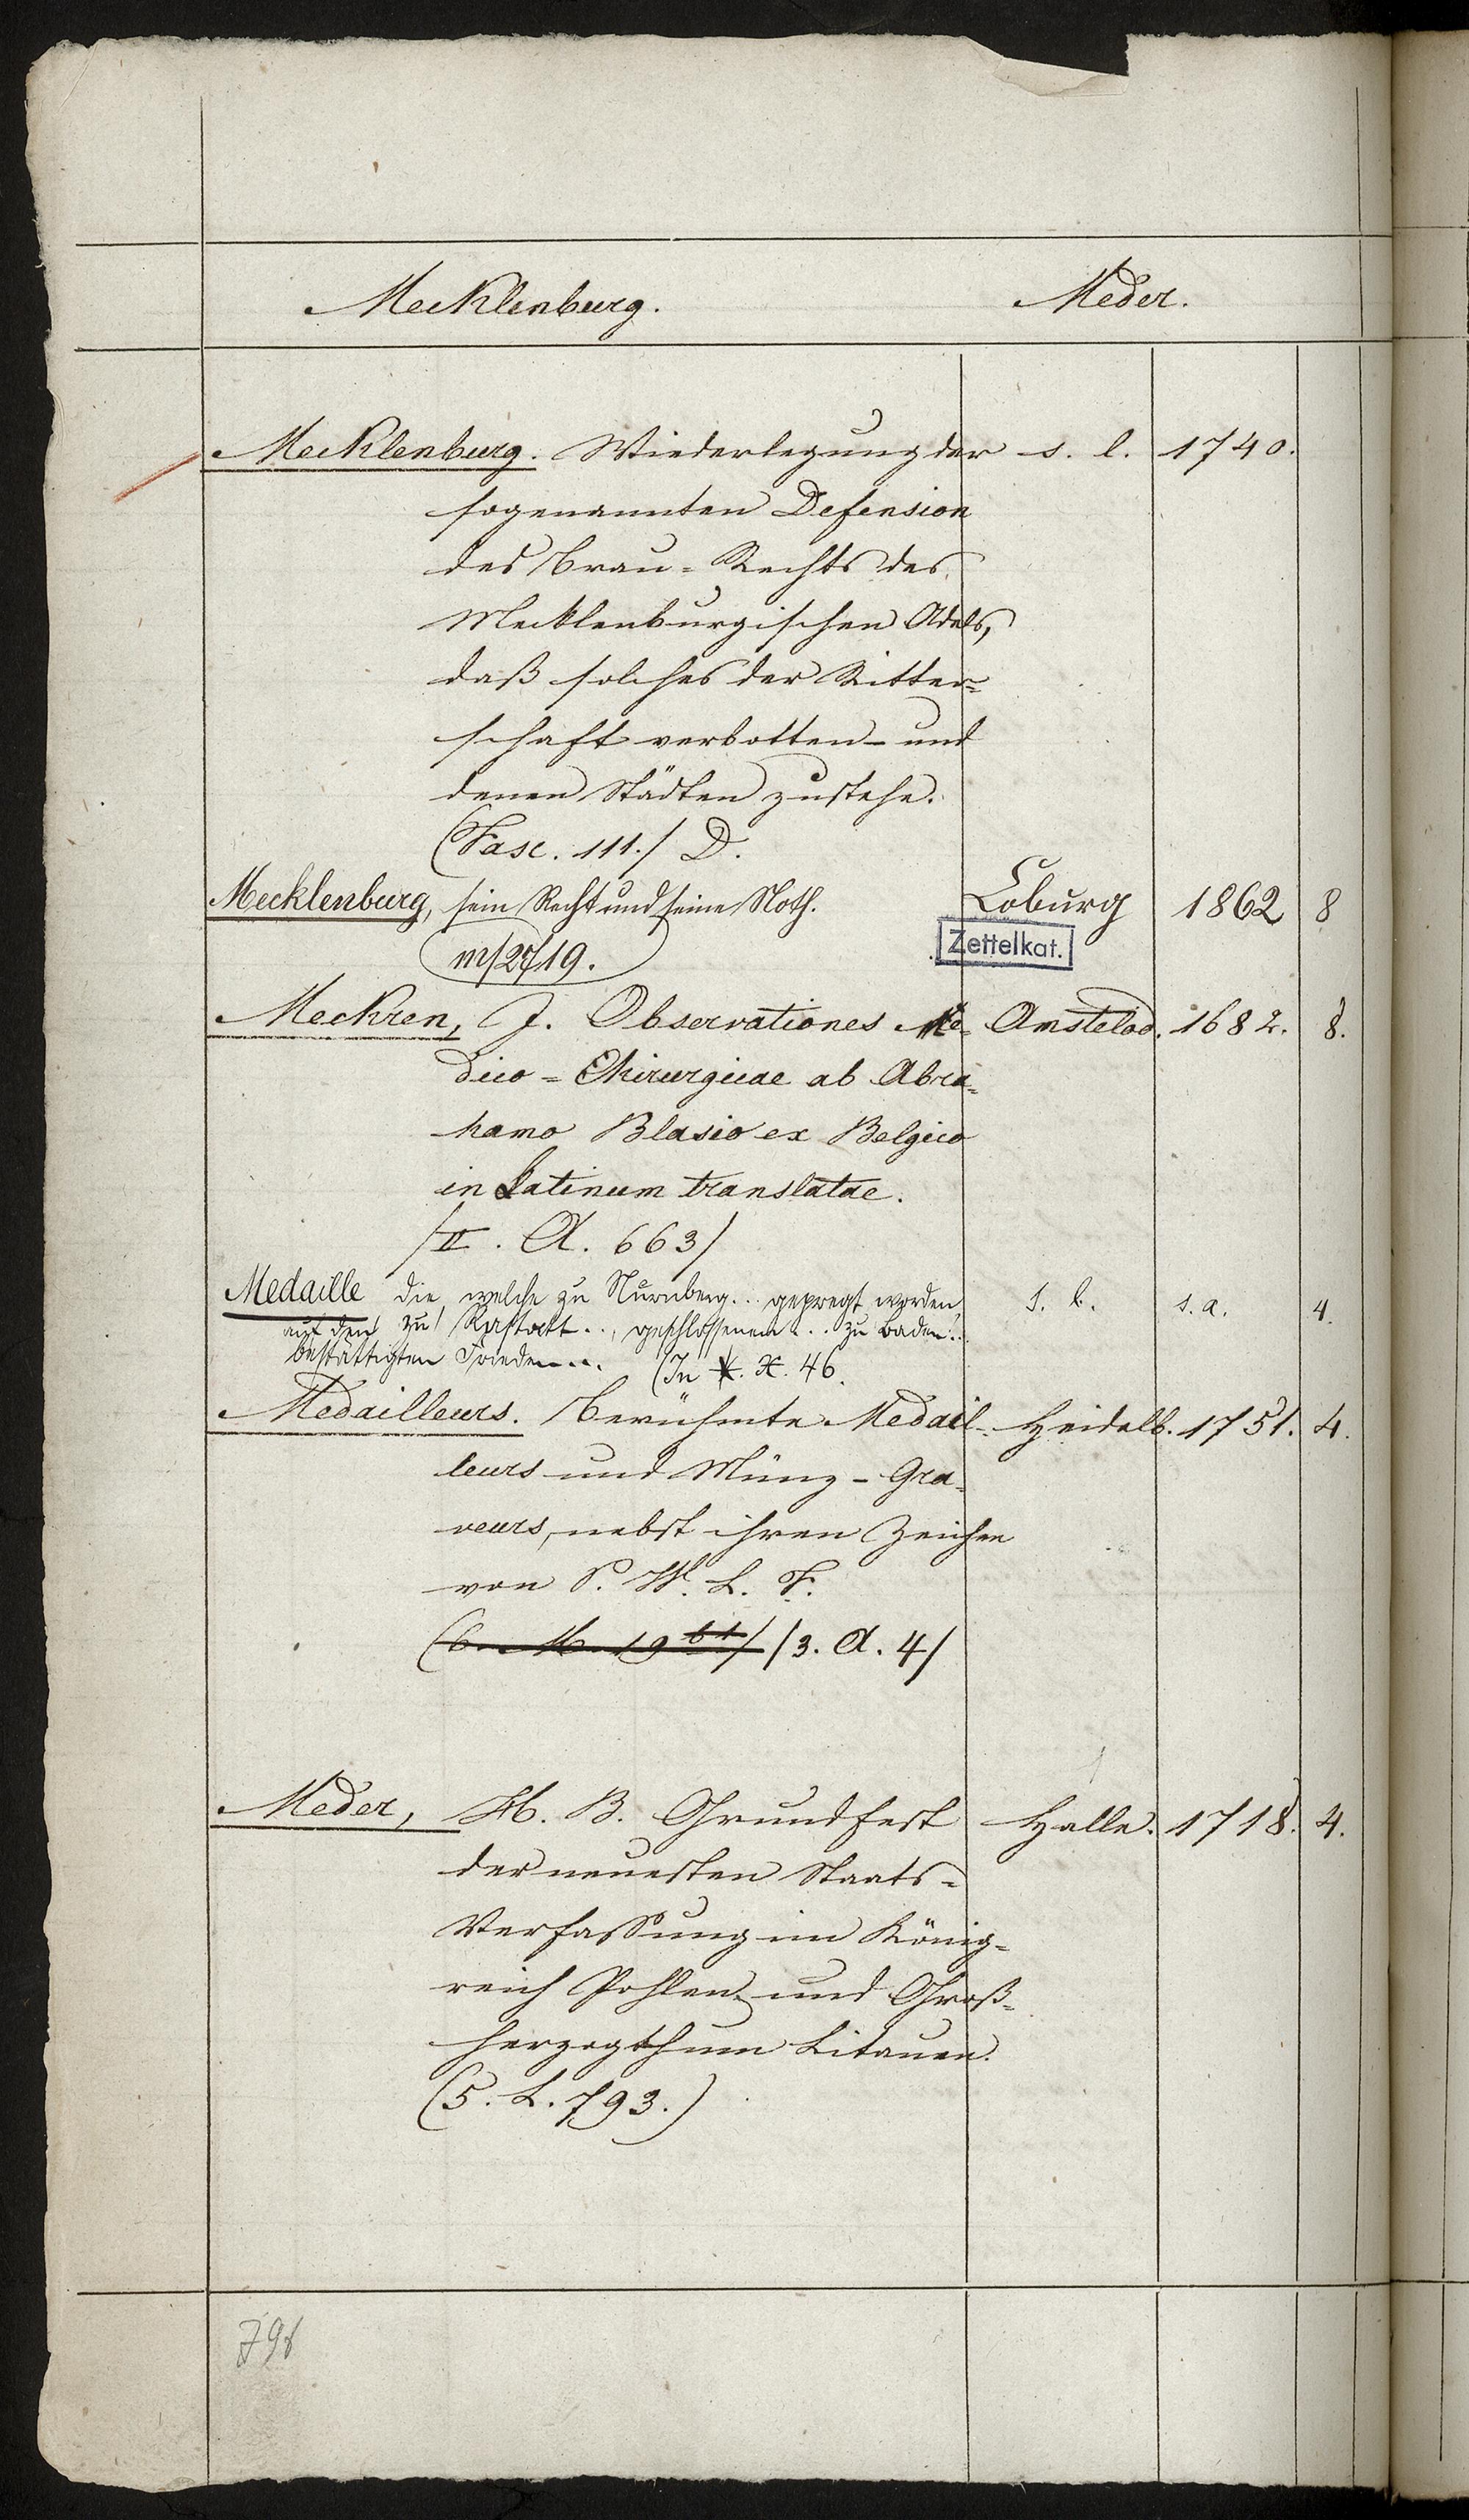 Mecklenburg. Meder.
Mecklenburg. Wiederlegung der s. l. 1740.
sogenannten Defension
des Brau-Rechts des
Mecklenburgischen Adels,
daß solches der Ritter=
schaft verbotten- und
denen Städten zustehe.
(Fasc. 111./ D.
Mecklenburg, sein Recht und seine Noth. Coburg 1862 8
m/27/19. Zettelkat.
Meckren, J. Observationes Me= Amstelod. 1682. 8.
dico = Chirurgicae ab Abra=
hamo Blasio ex Belgico
in Latinum translatae.
/II. A. 663/
Medaille die, welche zu Nürnberg... gepregt worden s. l. s. a. 4.
auf den zu Rastatt.., geschlossenen... zu Baden..
bestättigten Frieden... (In X. 46.
Medailleurs. Berühmte Medail= Heidelb. 1751. 4.
leurs und Münz-Gra=
veurs, nebst ihren Zeichen
von P. W. L. F.
(6. M. 19 /3. A. 4/
Meder, H. B. Grundfest Halle. 1718. 4.
der neuesten Staats=
Verfassung im König=
reich Pohlen und Groß=
herzogthum Litauen.
(5. L. 793.)